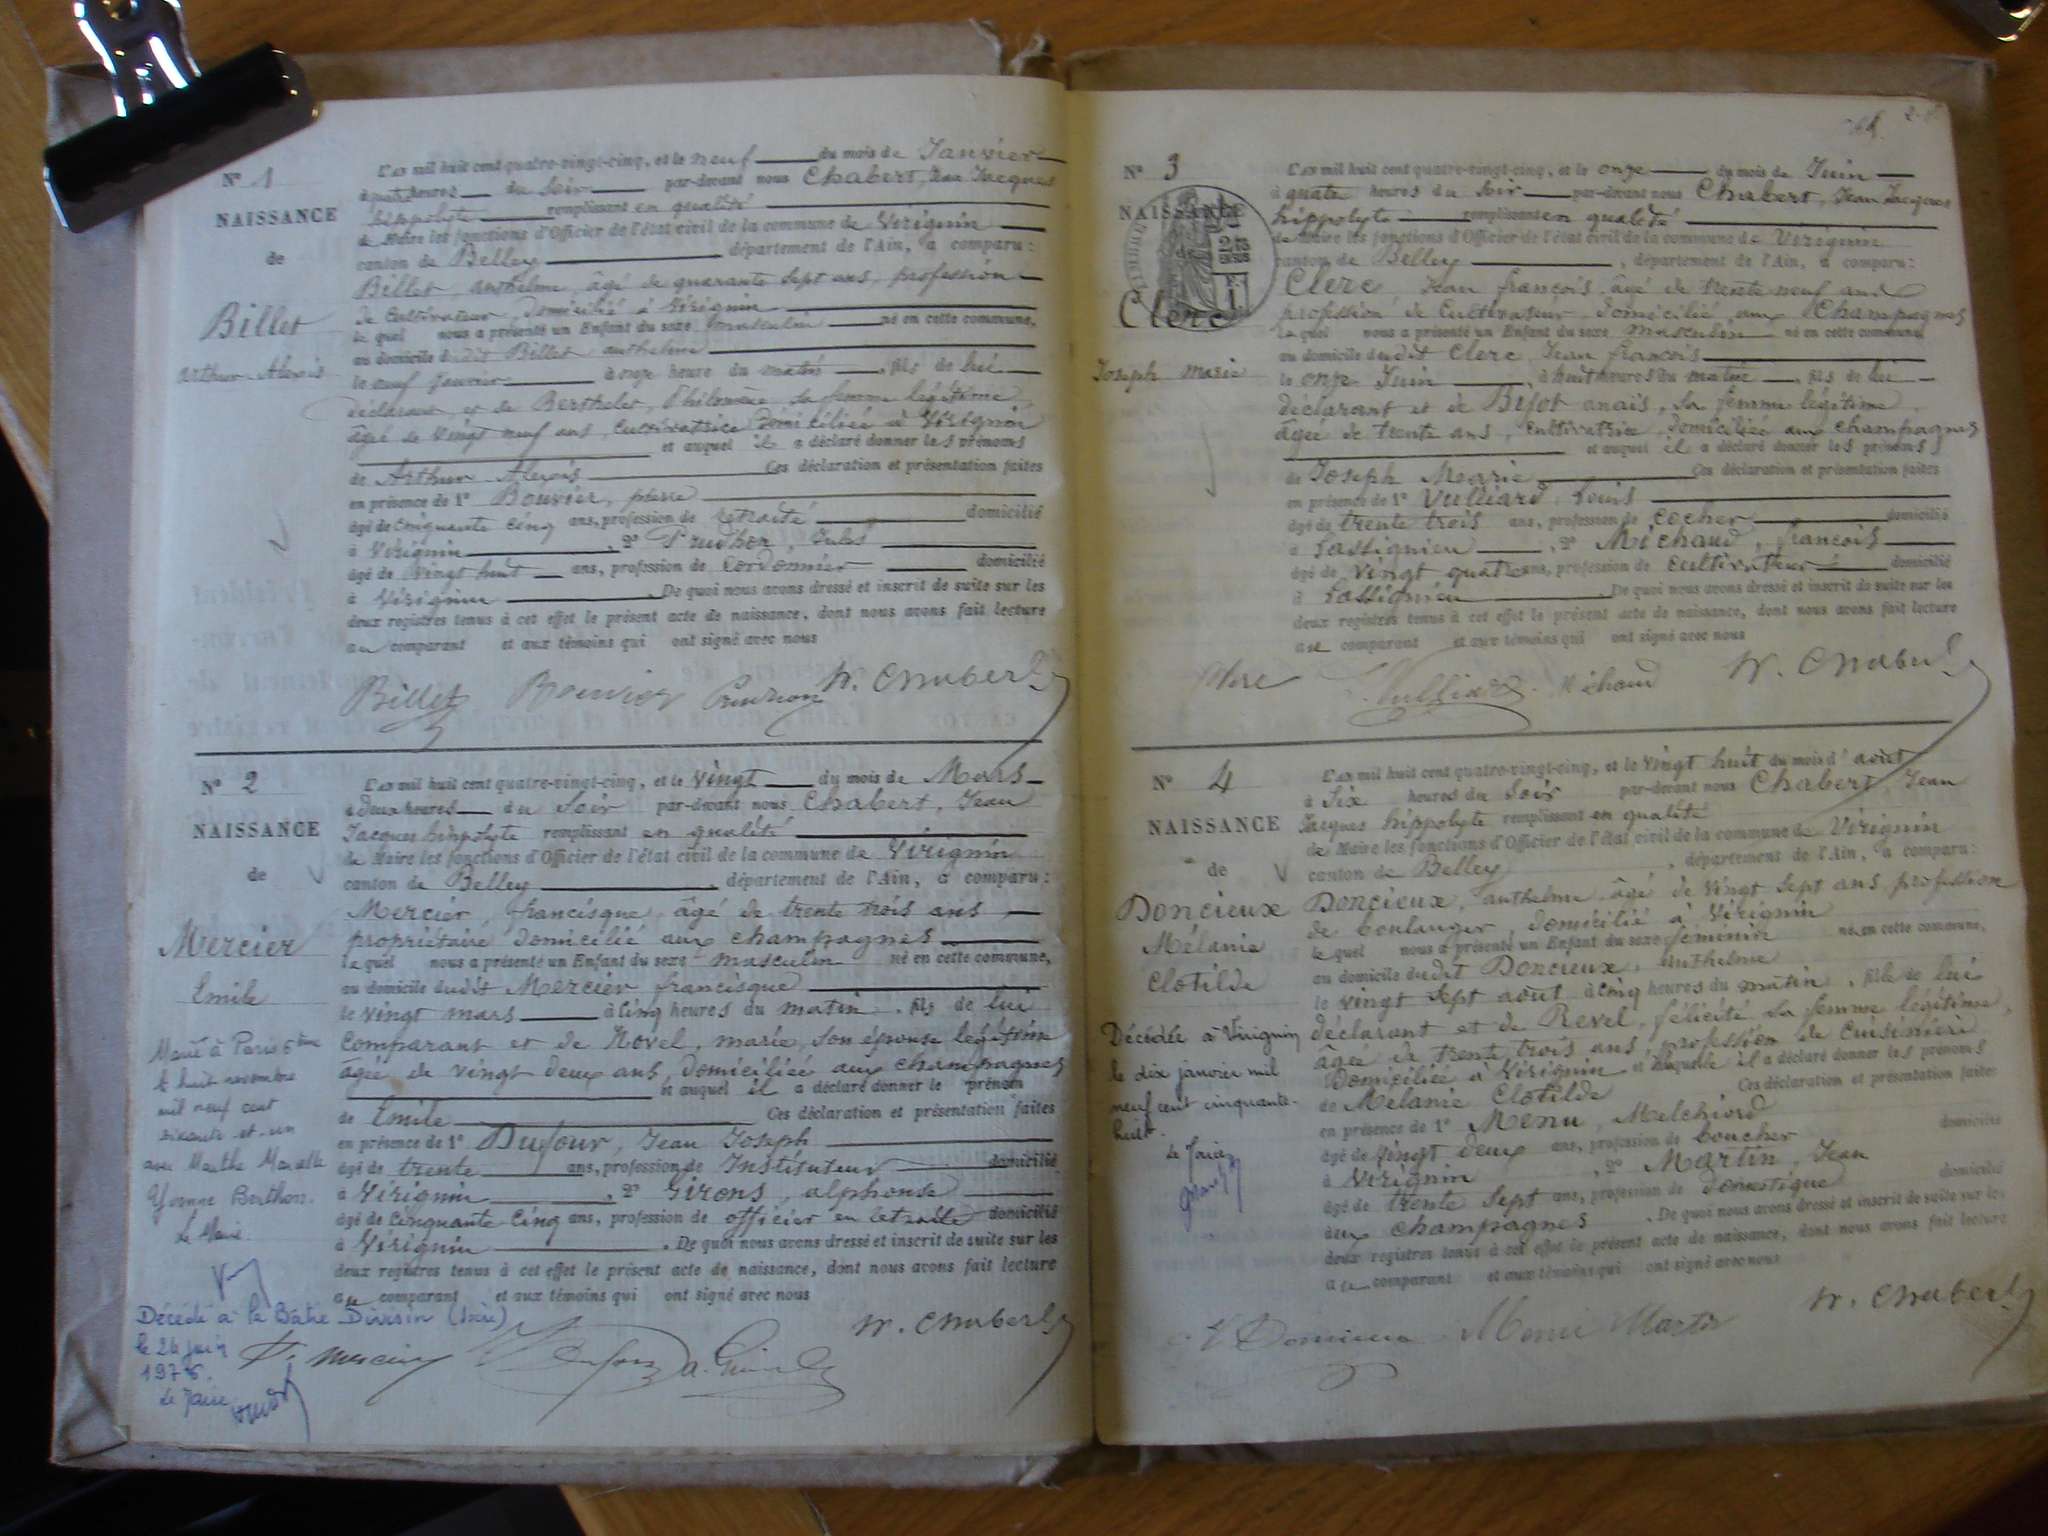 N° 1
NAISSANCE
de
Billet
Arthur Alexis
L'an mil huit cent quatre-vingt-cinq, et le neuf du mois de Janvier
à quatre heures du Soir par-devant nous Chabert, Jean Jacques
hippolyte remplissant en qualité
de Maire les fonctions d'Officier de l'état civil de la commune de Virignin
canton de Belley, département de l'Ain, a comparu :
Billet, anthelme, âgé de quarante sept ans, profession
de Cultivateur, domicilié à Virignin
le quel nous a présenté un Enfant du sexe masculin né en cette commune,
au domicile dudit Billet anthelme
le neuf Janvier à onze heure du matin, fils de lui
déclarant et de Berthelet, Philomène sa femme légitime
âgée de vingt neuf ans, Cultivatrice domiciliée à Virignin
et auquel il a déclaré donner les prénoms
de Arthur Alexis Ces déclaration et présentation faites
en présence de 1° Bouvier, pierre
âgé de Cinquante Cinq ans, profession de retraité domicilié
à Virignin, 2° Prudhon, Jules
âgé de Vingt huit ans, profession de Cordonnier domicilié
à Virignin. De quoi nous avons dressé et inscrit de suite sur les
deux registres tenus à cet effet le présent acte de naissance, dont nous avons fait lecture
au comparant et aux témoins qui ont signé avec nous
Billet Bouvier Prudhon h. Chabert
N° 2
NAISSANCE
de
Mercier
Emile
Marié à Paris 6ème
le huit novembre
mil neuf cent
soixante et un
avec Marthe Marcelle
Yvonne Berthon
Le Maire
Décédé à la Bâtie Divisin (Isère)
le 24 juin
1976.
Le Maire
L'an mil huit cent quatre-vingt-cinq, et le vingt du mois de Mars
à deux heures du Soir par-devant nous Chabert, Jean
Jacques hippolyte remplissant en qualité
de Maire les fonctions d'Officier de l'état civil de la commune de Virignin
canton de Belley, département de l'Ain, a comparu :
Mercier, francisque, âgé de trente trois ans
propriétaire domicilié aux champagnes
le quel nous a présenté un Enfant du sexe masculin né en cette commune,
au domicile dudit Mercier francisque
le vingt mars à Cinq heures du matin, fils de lui
Comparant et de Novel, marie, son épouse légitime
âgée de vingt deux ans, domiciliée aux champagnes
et auquel il a déclaré donner le prénom
de Emile Ces déclaration et présentation faites
en présence de 1° Dufour, Jean Joseph
âgé de trente ans, profession de Instituteur domicilié
à Virignin, 2° Girons, alphonse
âgé de Cinquante Cinq ans, profession de officier en retraite domicilié
à Virignin. De quoi nous avons dressé et inscrit de suite sur les
deux registres tenus à cet effet le présent acte de naissance, dont nous avons fait lecture
au comparant et aux témoins qui ont signé avec nous
h. Chabert
F. Mercier Dufour
N° 3
NAISSANCE
Clerc
Joseph Marie
L'an mil huit cent quatre-vingt-cinq, et le onze du mois de Juin
à quatre heures du Soir par-devant nous Chabert, Jean Jacques
hippolyte remplissant en qualité
de Maire les fonctions d'Officier de l'état civil de la commune de Virignin
canton de Belley, département de l'Ain, a comparu :
Clerc, Jean françois, âgé de trente neuf ans
profession de Cultivateur, domicilié aux Champagnes
le quel nous a présenté un Enfant du sexe masculin né en cette commune
au domicile dudit Clerc, Jean françois
le onze Juin, à huit heures du matin, fils de lui
déclarant et de Bijot anaïs, sa femme légitime
âgée de trente ans, Cultivatrice, domiciliée aux champagnes
et auquel il a déclaré donner les prénoms
de Joseph Marie Ces déclaration et présentation faites
en présence de 1° Vulliard, Louis
âgé de trente trois ans, profession de Cocher domicilié
à Lassignieu, 2° Michaud, françois
âgé de vingt quatre ans, profession de cultivateur domicilié
à Lassignieu. De quoi nous avons dressé et inscrit de suite sur les
deux registres tenus à cet effet le présent acte de naissance, dont nous avons fait lecture
au comparant et aux témoins qui ont signé avec nous
Clerc L. Vulliard Michaud h. Chabert
N° 4
NAISSANCE
de
Doncieux
Mélanie
Clotilde
Décédée à Virignin
le dix janvier mil
neuf cent cinquante-
huit.
Le Maire
L'an mil huit cent quatre-vingt-cinq, et le vingt huit du mois d'août
à Six heures du Soir par-devant nous Chabert, Jean
Jacques hippolyte remplissant en qualité
de Maire les fonctions d'Officier de l'état civil de la commune de Virignin
canton de Belley, département de l'Ain, a comparu :
Doncieux, anthelme, âgé de vingt sept ans, profession
de boulanger, domicilié à Virignin
le quel nous a présenté un Enfant du sexe féminin née en cette commune,
au domicile dudit Doncieux, anthelme
le vingt sept août, à Cinq heures du matin, fille de lui
déclarant et de Revel, félicité sa femme légitime,
âgée de trente trois ans, profession de Cuisinière
domiciliée à Virignin et à laquelle il a déclaré donner les prénoms
de Mélanie Clotilde Ces déclaration et présentation faites
en présence de 1° Menu, Melchiord
âgé de vingt deux ans, profession de boucher domicilié
à Virignin, 2° Martin, Jean
âgé de trente Sept ans, profession de domestique domicilié
aux champagnes. De quoi nous avons dressé et inscrit de suite sur les
deux registres tenus à cet effet le présent acte de naissance, dont nous avons fait lecture
au comparant et aux témoins qui ont signé avec nous
h. Chabert
Doncieux Menu Martin